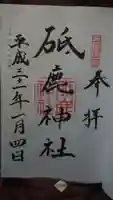 奉拝
砥鹿神社
平成三十一年一月四日